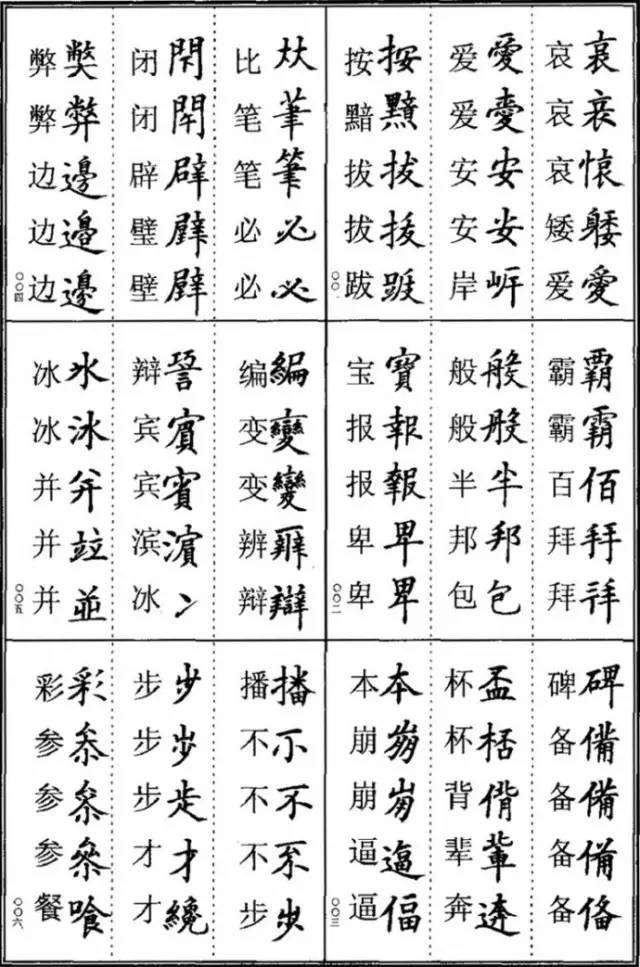 哀 哀
哀 哀
哀
矮
爱 愛
爱 愛
爱
安 安
安 安
岸
按 按
黯
拔 拔
拔 拔
跋
〇〇一
霸 霸
霸 霸
百 佰
拜 拜
拜 拜
般 般
般 般
半 半
邦 邦
包 包
宝 寶
报 報
报 報
卑 卑
卑 卑
〇〇二
碑 碑
备 備
备 備
备 備
备
杯 盃
杯
背 偝
辈 輩
奔
本 本
崩
崩
逼 逼
逼 偪
〇〇三
比
笔 筆
笔 筆
必 必
必 必
闭 閇
闭 閈
辟 辟
璧
壁
弊
弊 弊
边 邊
边 邊
边 邊
〇〇四
编 編
变 變
变 變
辨
辩
辩
宾 賓
宾 賓
滨 濵
冰 冫
冰 氷
冰 冰
并 并
并 竝
并 並
〇〇五
播 播
不 不
不 不
不
步
步 步
步 步
步
才 才
才 纔
彩 彩
参 叅
参 叅
参
餐 喰
〇〇六